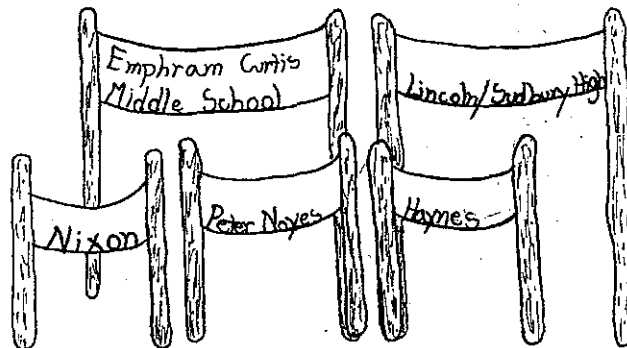 Emphram Curtis
Middle School
Lincoln/Sudbury High
Nixon
Peter Noyes
Haynes